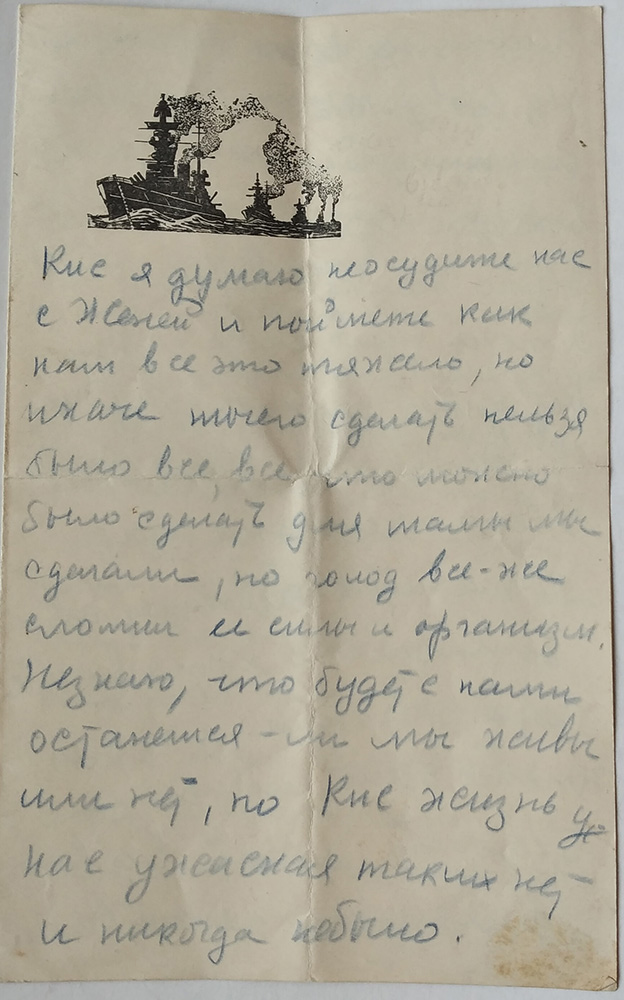 Кис я думаю неосудите нас
с Женей и поймете как
нам все это тяжело, но
иначе ничего сделать нельзя
было все, все что можно
было сделать для мамы мы
сделали, но голод все-же
сломил ее силы и организм.
Незнаю, что будет с нами
останемся-ли мы живы
или нет, но Кис жизнь у
нас ужасная таких нет
и никогда небыло.